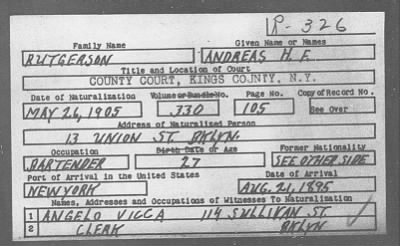 R-326
Family Name Given Name or Names
RUTGERSON ANDREAS H. F.
Title and Location of Court
COUNTY COURT, KINGS COUNTY, N.Y.
Date of Naturalization Volume or Bundle No. Page No. Copy of Record No.
MAY 26, 1905 330 105 See Over
Address of Naturalized Person
13 UNION ST. BKLYN
Occupation Birth Date or Age Former Nationality
BARTENDER 27 SEE OTHER SIDE
Port of Arrival in the United States Date of Arrival
NEW YORK AUG. 21, 1895
Names, Addresses and Occupations of Witnesses To Naturalization
1 ANGELO VICCA 114 SULLIVAN ST.
2 CLERK BKLYN